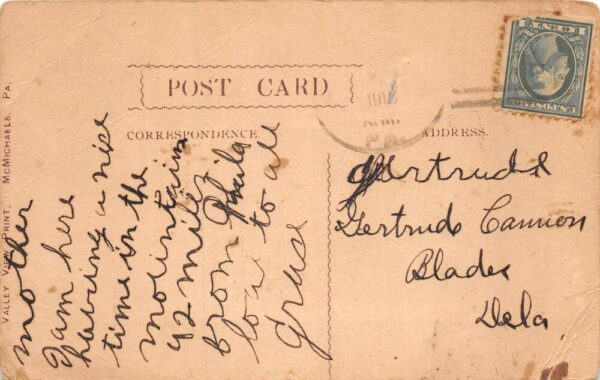 POST CARD
CORRESPONDENCE.
ADDRESS.
VALLEY VIEW PRINT, MCMICHAELS, PA.
mother
I am here
having a nise
time in the
mountains
92 miles
from Phila
love to all
Gertrude
Gertrude Cannon
Blades
Dela